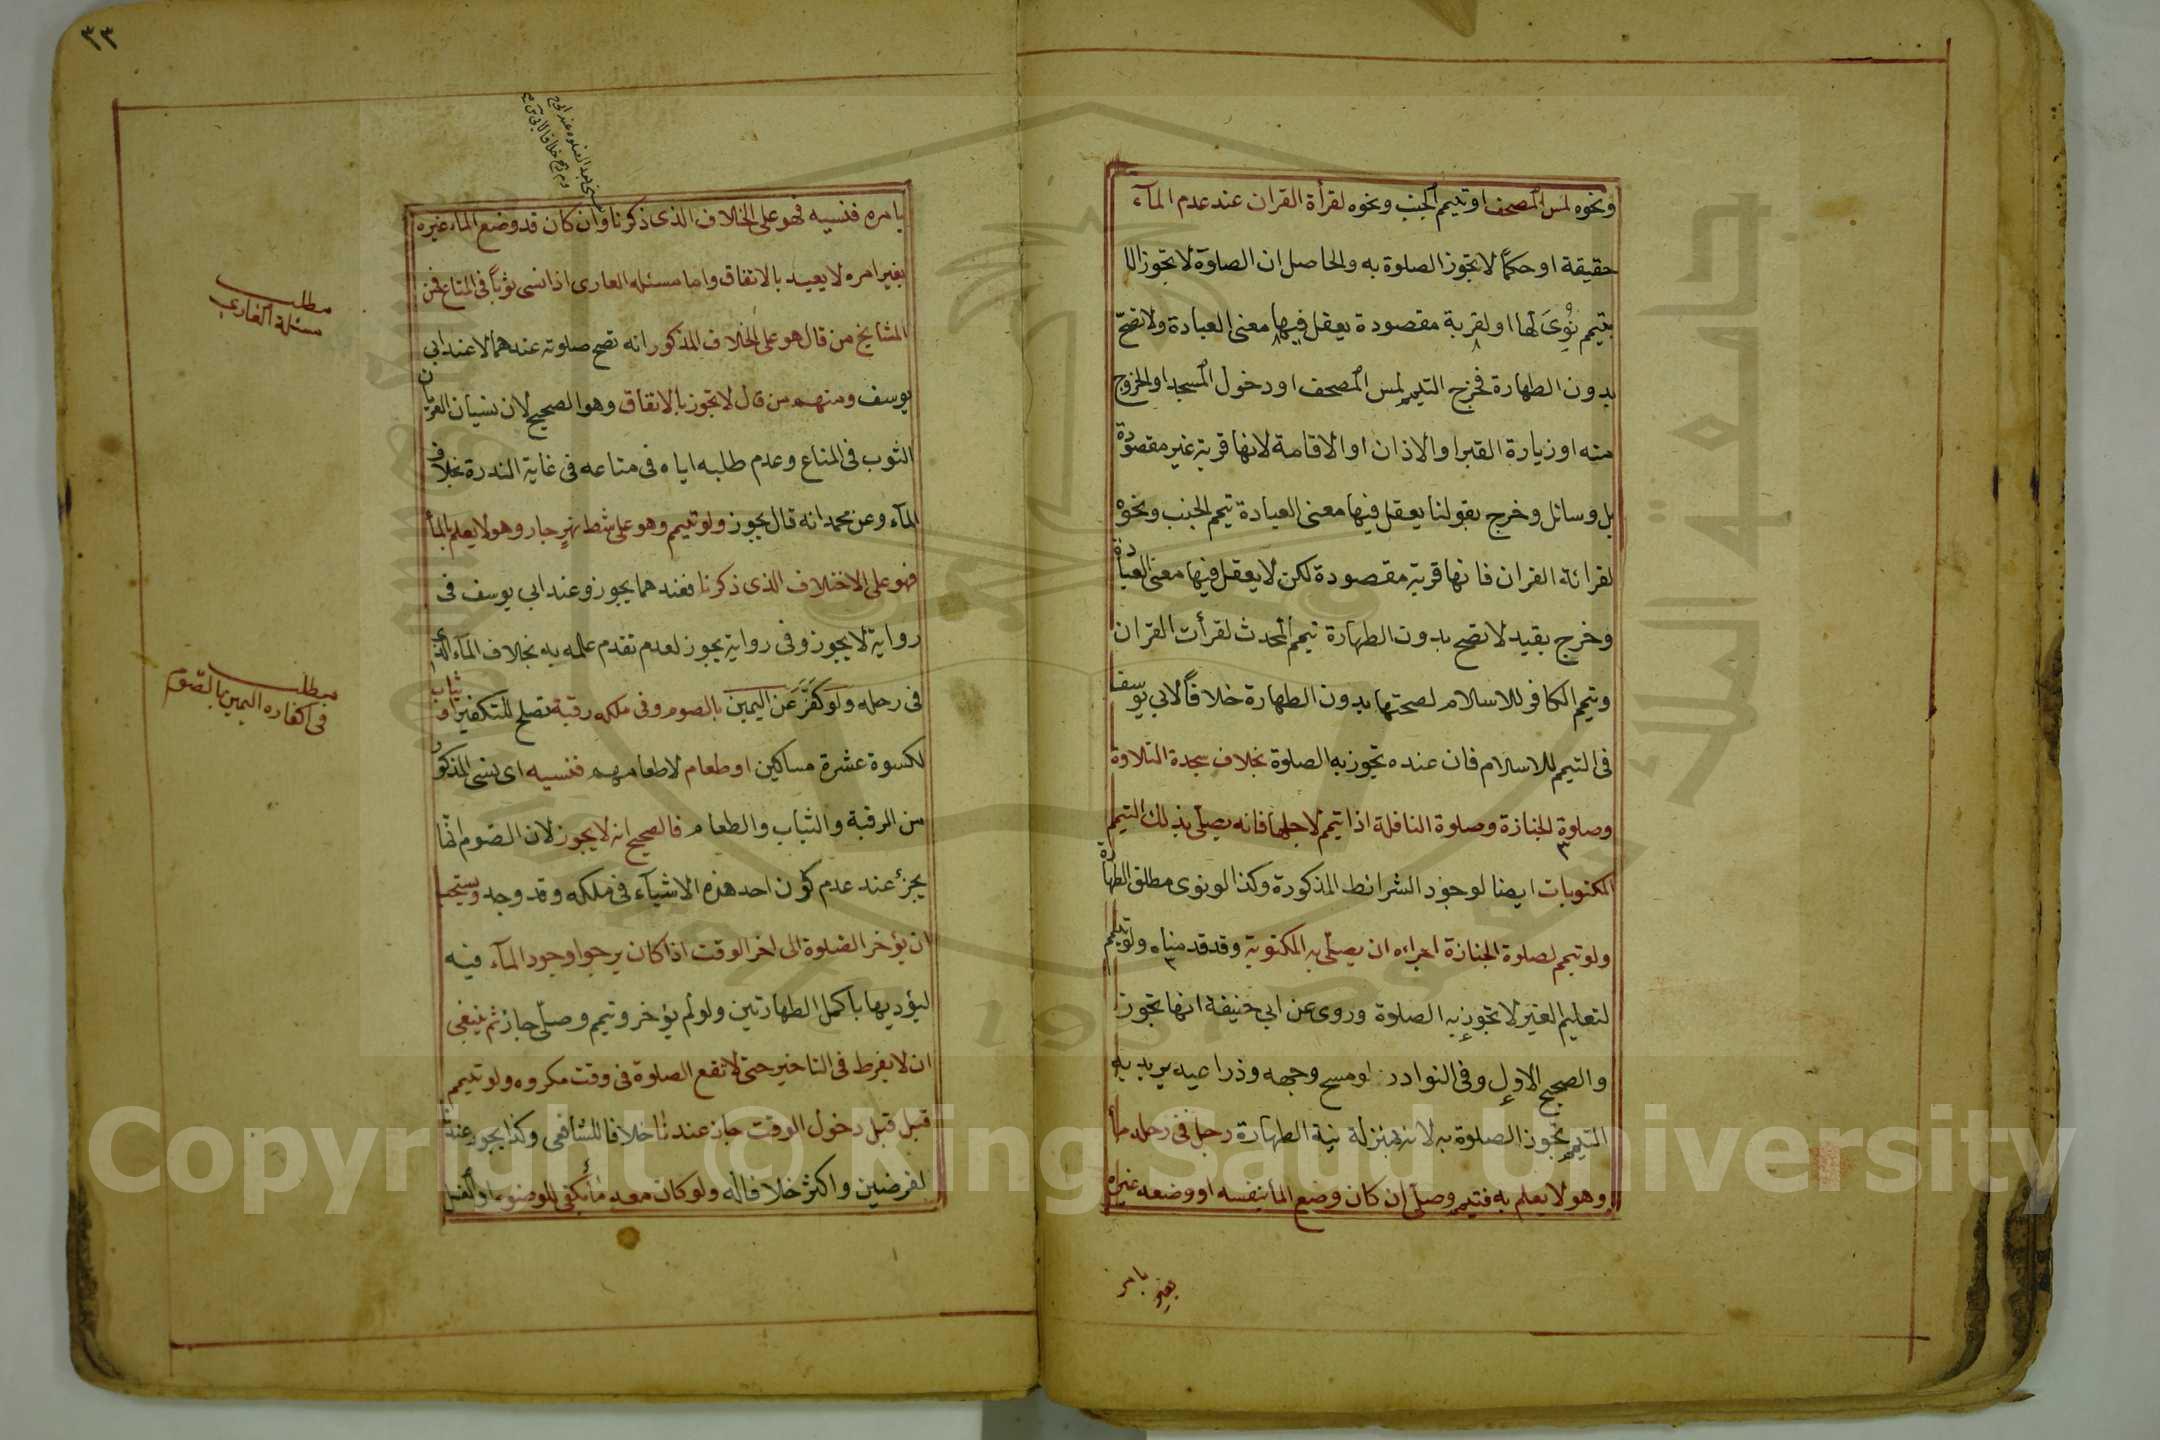 ونحوه لمس المصحف او تيمم الجنب ونحوه لقرأة القران عند عدم المآء
حقيقة او حكمًا لا تجوز الصلوة به والحاصل ان الصلوة لا تجوز الا
بتيمم نُوِىَ لها او لقربة مقصودة يعقل فيها معنى العبادة ولا تصحّ
بدون الطهارة فخرج التيمم لمس المصحف او دخول المسجد او الخروج
منه او زيارة القبر او الاذان او الاقامة لانها قربة غير مقصودة
بل وسائل وخرج بقولنا يعقل فيها معنى العبادة تيمم الجنب ونحوه
لقرائة القران فانها قربة مقصودة لكن لا يعقل فيها معنى العبادة
وخرج بقيد لا تصح بدون الطهارة تيمم المحدث لقرأت القران
وتيمم الكافر للاسلام لصحتها بدون الطهارة خلافًا لابي يوسف
فى التيمم للاسلام فان عنده تجوز به الصلوة بخلاف سجدة التلاوة
وصلوة الجنازة وصلوة النافلة اذا تيمم لاجلها فانه يصلّى بذلك التيمم
المكتوبات ايضا لوجود الشرائط المذكورة وكذا لو نوى مطلق الطهارة
ولو تيمم لصلوة الجنازة اجزاه ان يصلّى به المكتوبة وقد قدمناه ولو تيمم
لتعليم الغير لا تجوز به الصلوة وروى عن ابي حنيفة انها تجوز
والصحيح الاول وفى النوادر لو مسح وجهه وذراعيه يريد به
التيمم تجوز الصلوة به لانه بمنزلة نية الطهارة رجل فى رحله مأ
وهو لا يعلم به فتيمم وصلّى ان كان وضع المأ بنفسه او وضعه غيره
بغير بامر
٣٣
بامره فنسيه فهو على الخلاف الذى ذكرنا وان كان قد وضع الماء غيره
بغير امره لا يعيد بالاتفاق واما مسئلة العارى اذا نسى ثوبًا فى المتاع فمن
المشايخ من قال هو على الخلاف المذكور انه تصح صلوته عندهما لا عند ابي
يوسف ومنهم من قال لا تجوز بالاتفاق وهو الصحيح لان نسيان العريان
الثوب فى المتاع وعدم طلبه اياه فى متاعه فى غاية الندرة بخلاف
المآء وعن محمد انه قال يجوز ولو تيمم وهو على شط نهرٍ جار وهو لا يعلم بالمأ
فهو على الاختلاف الذى ذكرنا فعندهما يجوز وعند ابي يوسف فى
رواية لا يجوز وفى رواية يجوز لعدم تقدم علمه به بخلاف المآء الذى
فى رحله ولو كفَّرَ عَن اليمين بالصوم وفى ملكه رقبة تصلح للتكفير او ثياب
لكسوة عشرة مساكين او طعام لاطعامهم فنسيه اى نسى المذكور
من الرقبة والثياب والطعام فالصحيح انه لا يجوز لان الصّوم انّما
يجزئ عند عدم كوْن احد هذه الاشيآء فى ملكه وقد وجد ويستحب
ان يؤخر الصلوة الى اخر الوقت اذا كان يرجوا وجود المآء فيه
ليؤديها باكمل الطهارتين ولو لم يؤخر وتيمم وصلّى جاز ثم ينبغى
ان لا يفرط فى التاخير حتى لا تقع الصلوة فى وقت مكروه ولو تيمم
قبل قبل دخول الوقت جاز عندنا خلافا للشافعى وكذا يجوز عندنا
لفرضين واكثر خلافا له ولو كان معه مأ يكفى للوضوء او الغسل
مطلب
مسئلة العارى
مطلب
فى كفاره اليمين بالصّوم